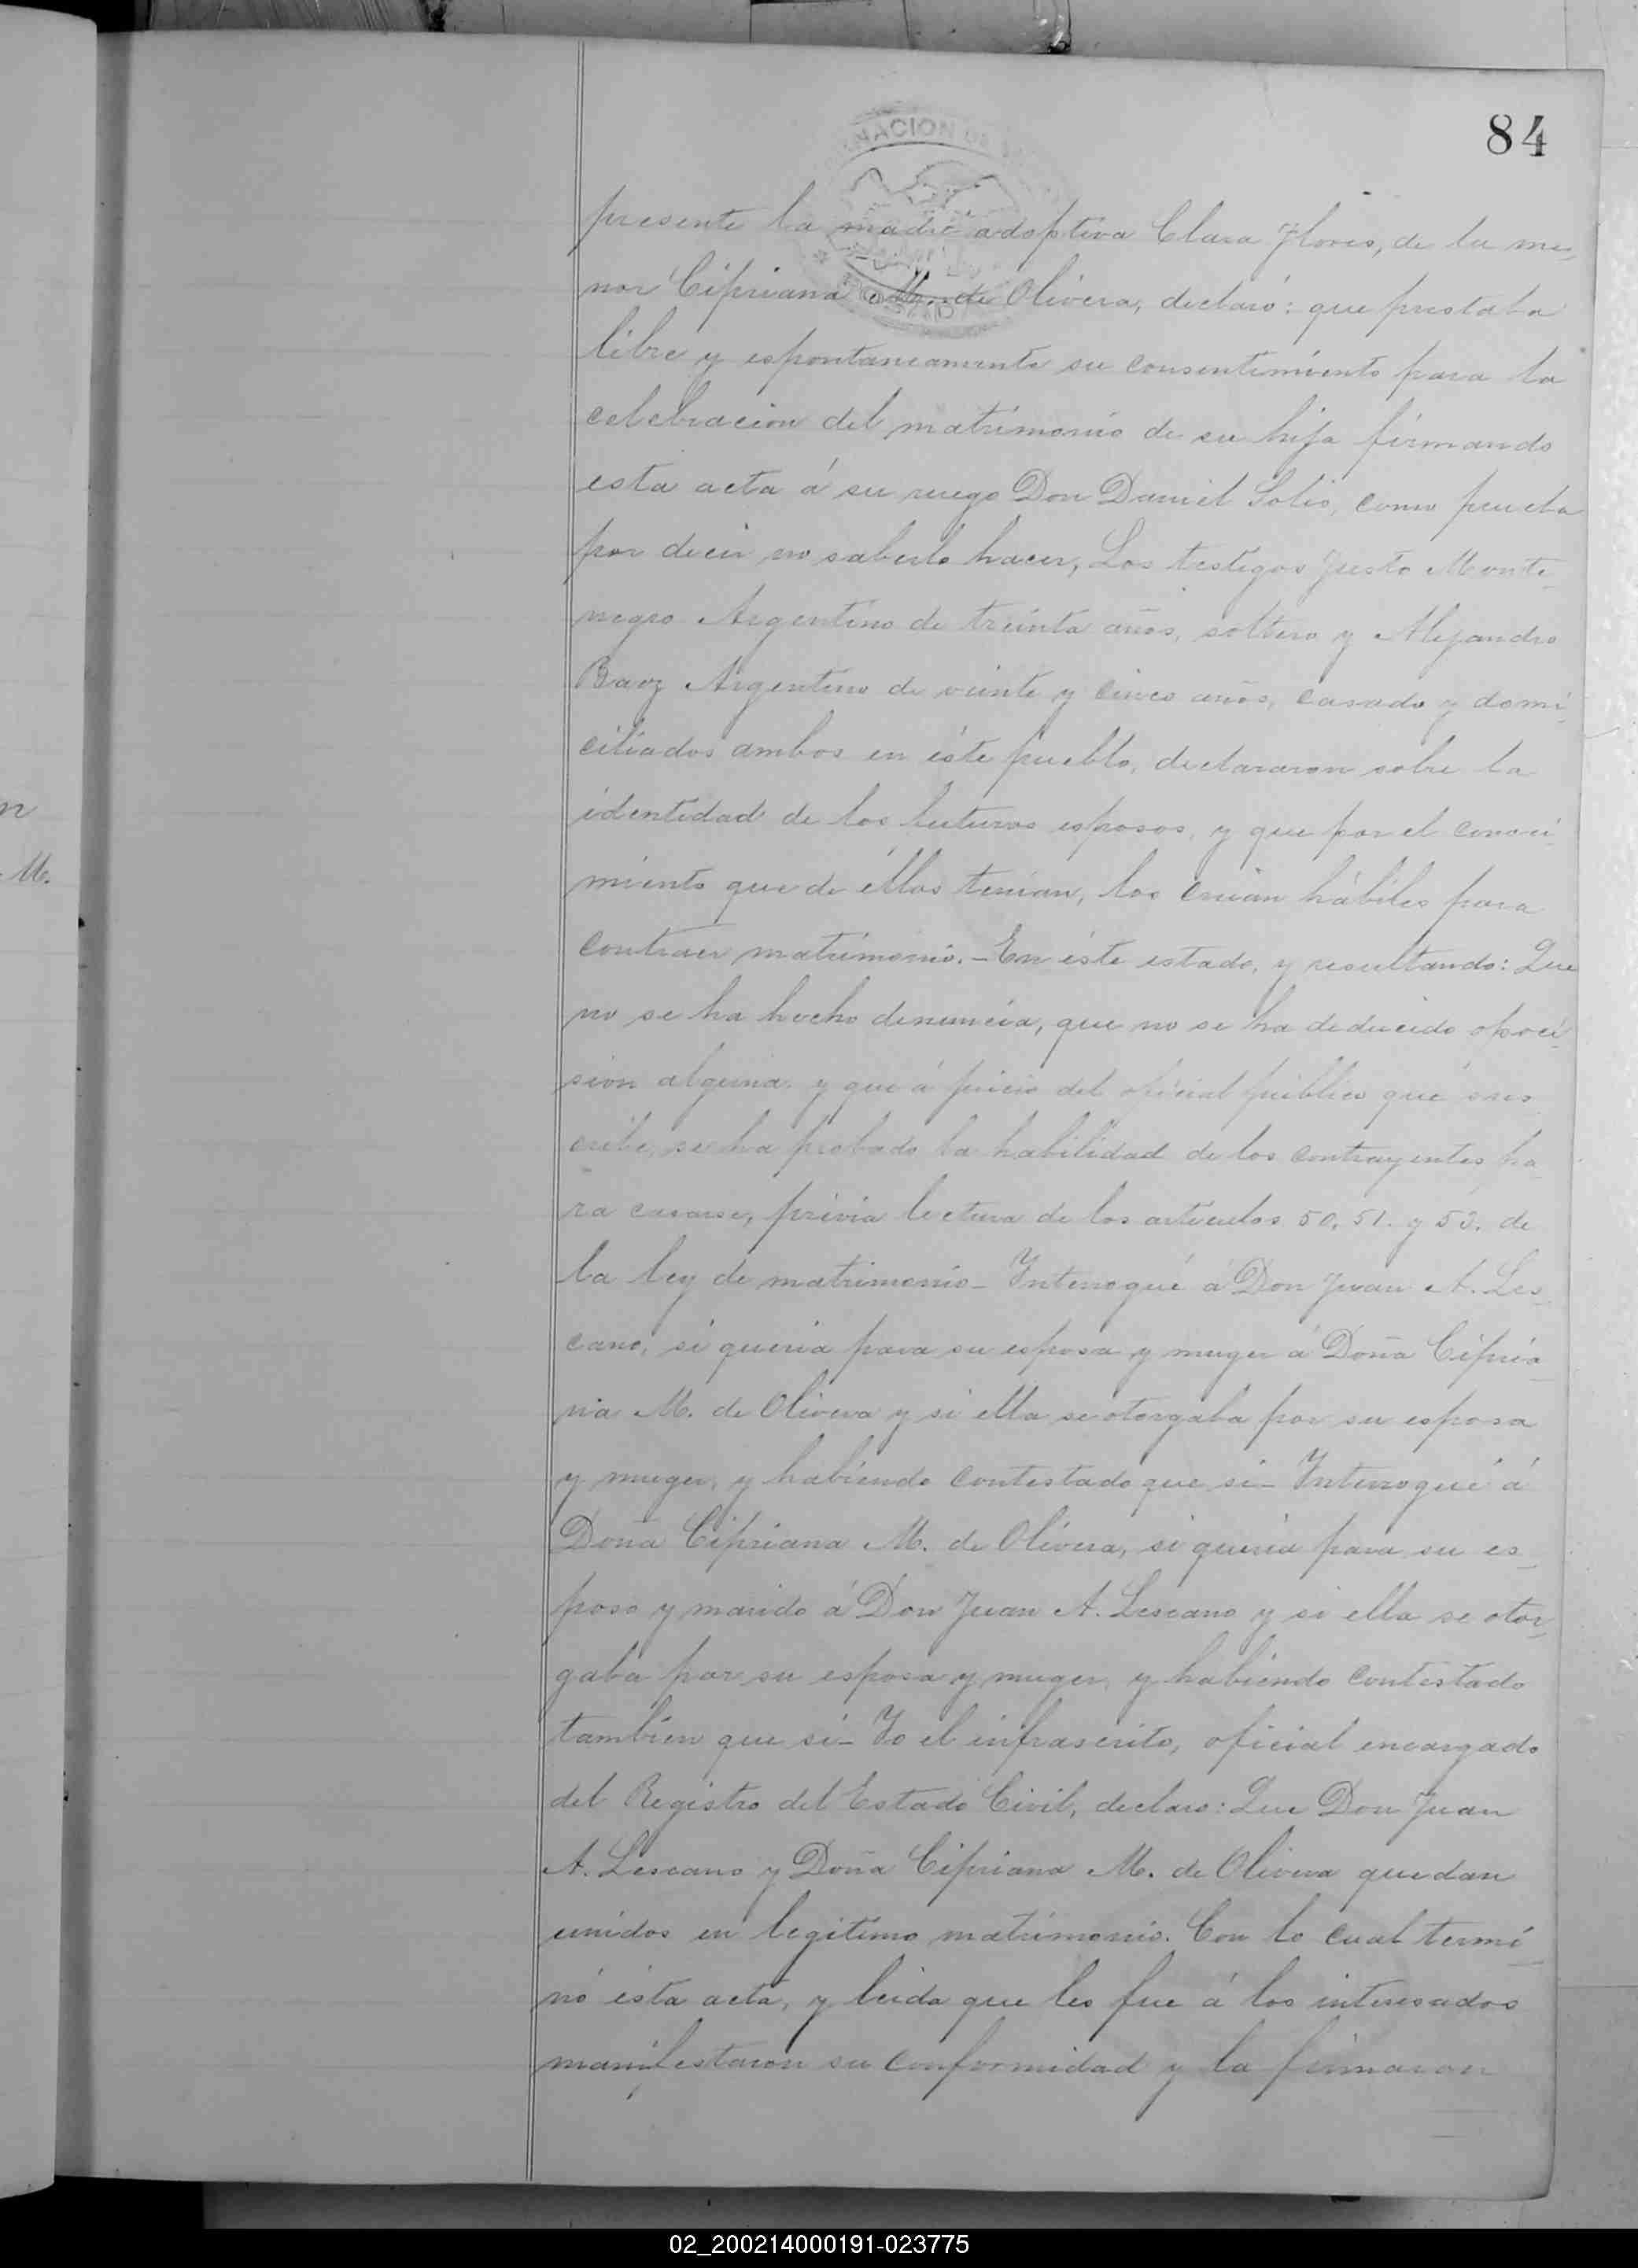 84
NACION
presente la madre adoptiva Clara Flores, de la me-
nor Cipriana M. de Olivera, declaró: que prestaba
libre y espontaneamente su consentimiento para la
celebracion del matrimonio de su hija firmando
esta acta á su ruego Don Daniel Solis, como prueba
por decir no saberlo hacer, Los testigos Justo Monte-
negro Argentino de treinta años, soltero y Alejandro
Baez Argentino de veinte y cinco años, casado y domi-
ciliados ambos en éste pueblo, declararon sobre la
identidad de los futuros esposos, y que por el conoci-
miento que de éllos tenian, los creian hábiles para
contraer matrimonio. - En éste estado, y resultando: Que
no se ha hecho denuncia, que no se ha deducido oposi-
sion alguna, y que á juicio del oficial público que sus
cribe, se ha probado la habilidad de los contrayentes pa-
ra casarse, prévia lectura de los articulos 50, 51 y 53, de
la ley de matrimonio - Interrogué á Don Juan A. Les-
cano, si queria para su esposa y muger á Doña Cipria-
na M. de Olivera y si ella se otorgaba por su esposa
y muger, y habiendo contestado que si - Interrogué á
Doña Cipriana M. de Olivera, si queria para su es-
poso y marido á Don Juan A. Lescano y si ella se otor-
gaba por su esposa y muger, y habiendo contestado
tambien que si - Yo el infrascrito, oficial encargado
del Registro del Estado Civil, declaro: Que Don Juan
A. Lescano y Doña Cipriana M. de Olivera quedan
unidos en legitimo matrimonio. Con lo cual termi-
nó ésta acta, y leida que les fue á los interesados
manifestaron su conformidad y la firmaron
n
M.
02_200214000191-023775